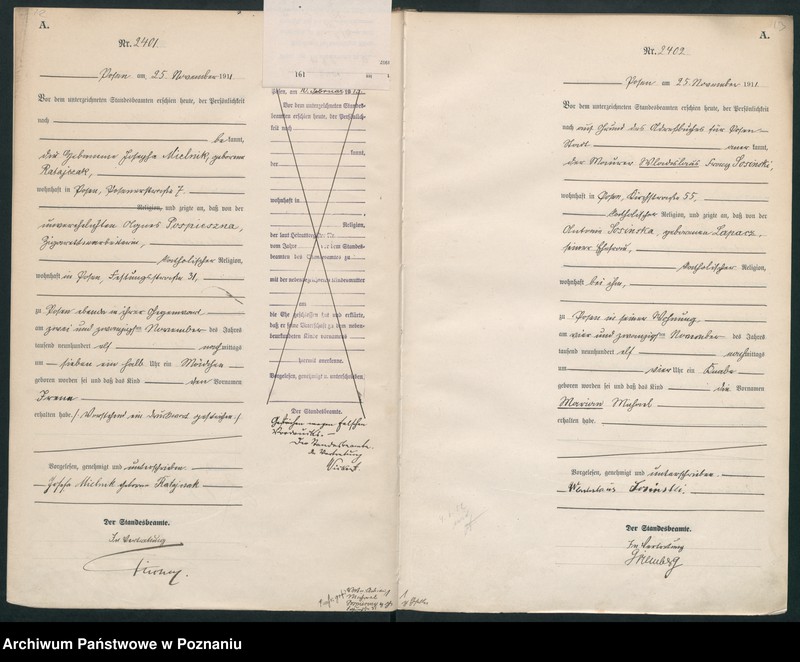 A.
Nr. 2401
Posen am 25. November 1911
Vor dem unterzeichneten Standesbeamten erschien heute, der Persönlichkeit
nach
be kannt,
die Hebamme Josepha Mielnik, geborene
Ratajczak,
wohnhaft in Posen, Posenerstraße 7.
Religion, und zeigte an, daß von der
unverehelichten Agnes Pospieszna,
Zigarettenarbeiterin,
katholischer Religion,
wohnhaft in Posen, 31,
zu Posen ebenda in ihrer Gegenwart
am zwei und zwanzigsten November des Jahres
tausend neunhundert elf nachmittags
um sieben ein halb Uhr ein Mädchen
geboren worden sei und daß das Kind den Vornamen
Irene
erhalten habe. Vorstehend ein Druckwort gestrichen.
Vorgelesen, genehmigt und unterschrieben
Josefa Mielnik geborene Ratajczak
Der Standesbeamte.
In Vertretung
161
Posen, am Februar
Vor dem unterzeichneten Standes-
beamten erschien heute, der Persönlich-
keit nach
kannt,
der
wohnhaft in
Religion,
der laut Heiratsregister Nr.
vom Jahre der dem Standes-
beamten des Standesamtes zu
mit der nebenbezeichneten Kindesmutter
am
die Ehe geschlossen hat und erklärte,
daß er seine Vaterschaft zu dem neben-
beurkundeten Kinde
hiermit anerkenne.
Vorgelesen, genehmigt u. unterschrieben
Der Standesbeamte.
Gestrichen wegen falschen
Vordrucks.
Der Standesbeamte
In Vertretung
A.
Nr. 2402
Posen am 25. November 1911
Vor dem unterzeichneten Standesbeamten erschien heute, der Persönlichkeit
nach auf Grund des Adreßbuches für Posen-
Stadt aner kannt,
der Maurer Wladislaus Franz Sosinski,
wohnhaft in Posen, 55,
katholischer Religion, und zeigte an, daß von der
Antonie Sosinska, geborenen Lapacz,
seiner Ehefrau,
katholischer Religion,
wohnhaft bei ihm,
zu Posen in seiner Wohnung
am vier und zwanzigsten November des Jahres
tausend neunhundert elf nachmittags
um vier Uhr ein Knabe
geboren worden sei und daß das Kind die Vornamen
Marian Michael
erhalten habe.
Vorgelesen, genehmigt und unterschrieben
Wladislaus Sosinski
Der Standesbeamte.
In Vertretung
Archiwum Państwowe w Poznaniu